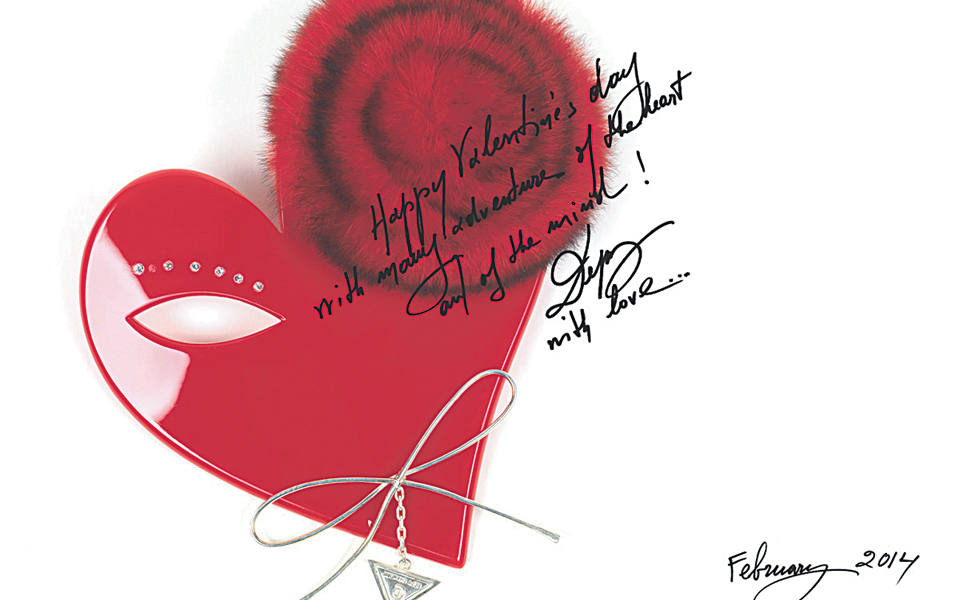 Happy Valentine's day
with many adventure of the heart
and of the mind!
with love...
February 2014